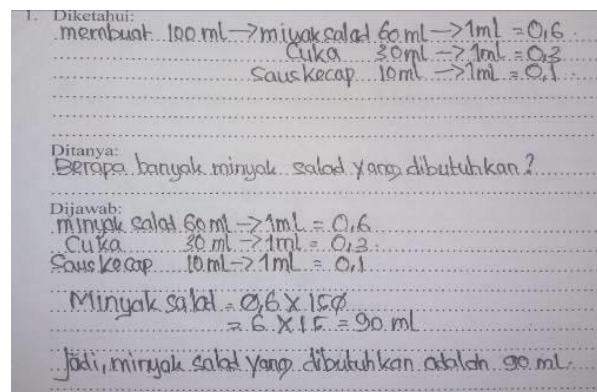 1. Diketahui:
membuat 100 ml → miyak salad 60 ml → 1 ml = 0,6
Cuka 30 ml → 1 ml = 0,3
Saus kecap 10 ml → 1 ml = 0,1
Ditanya:
Berapa banyak minyak salad yang dibutuhkan?
Dijawab:
minyak salad 60 ml → 1 ml = 0,6
Cuka 30 ml → 1 ml = 0,3
Saus kecap 10 ml → 1 ml = 0,1
Minyak salad = 0,6 X 150
= 6 X 15 = 90 ml
Jadi, minyak salad yang dibutuhkan adalah 90 ml.